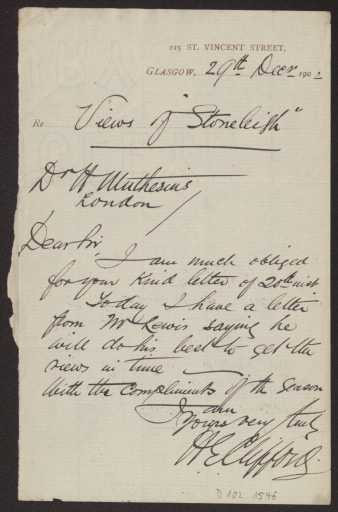 225 ST. VINCENT STREET,
GLASGOW, 29th Decr 1902
Re Views of "Stoneleigh"
Dr H Muthesius
London
Dear Sir,
I am much obliged
for your kind letter of 20th inst
Today I have a letter
from Mr Lewis saying he
will do his best to get the
views in time —
With the compliments of the season
I am
Yours very truly
H E Clifford
D 102 1546